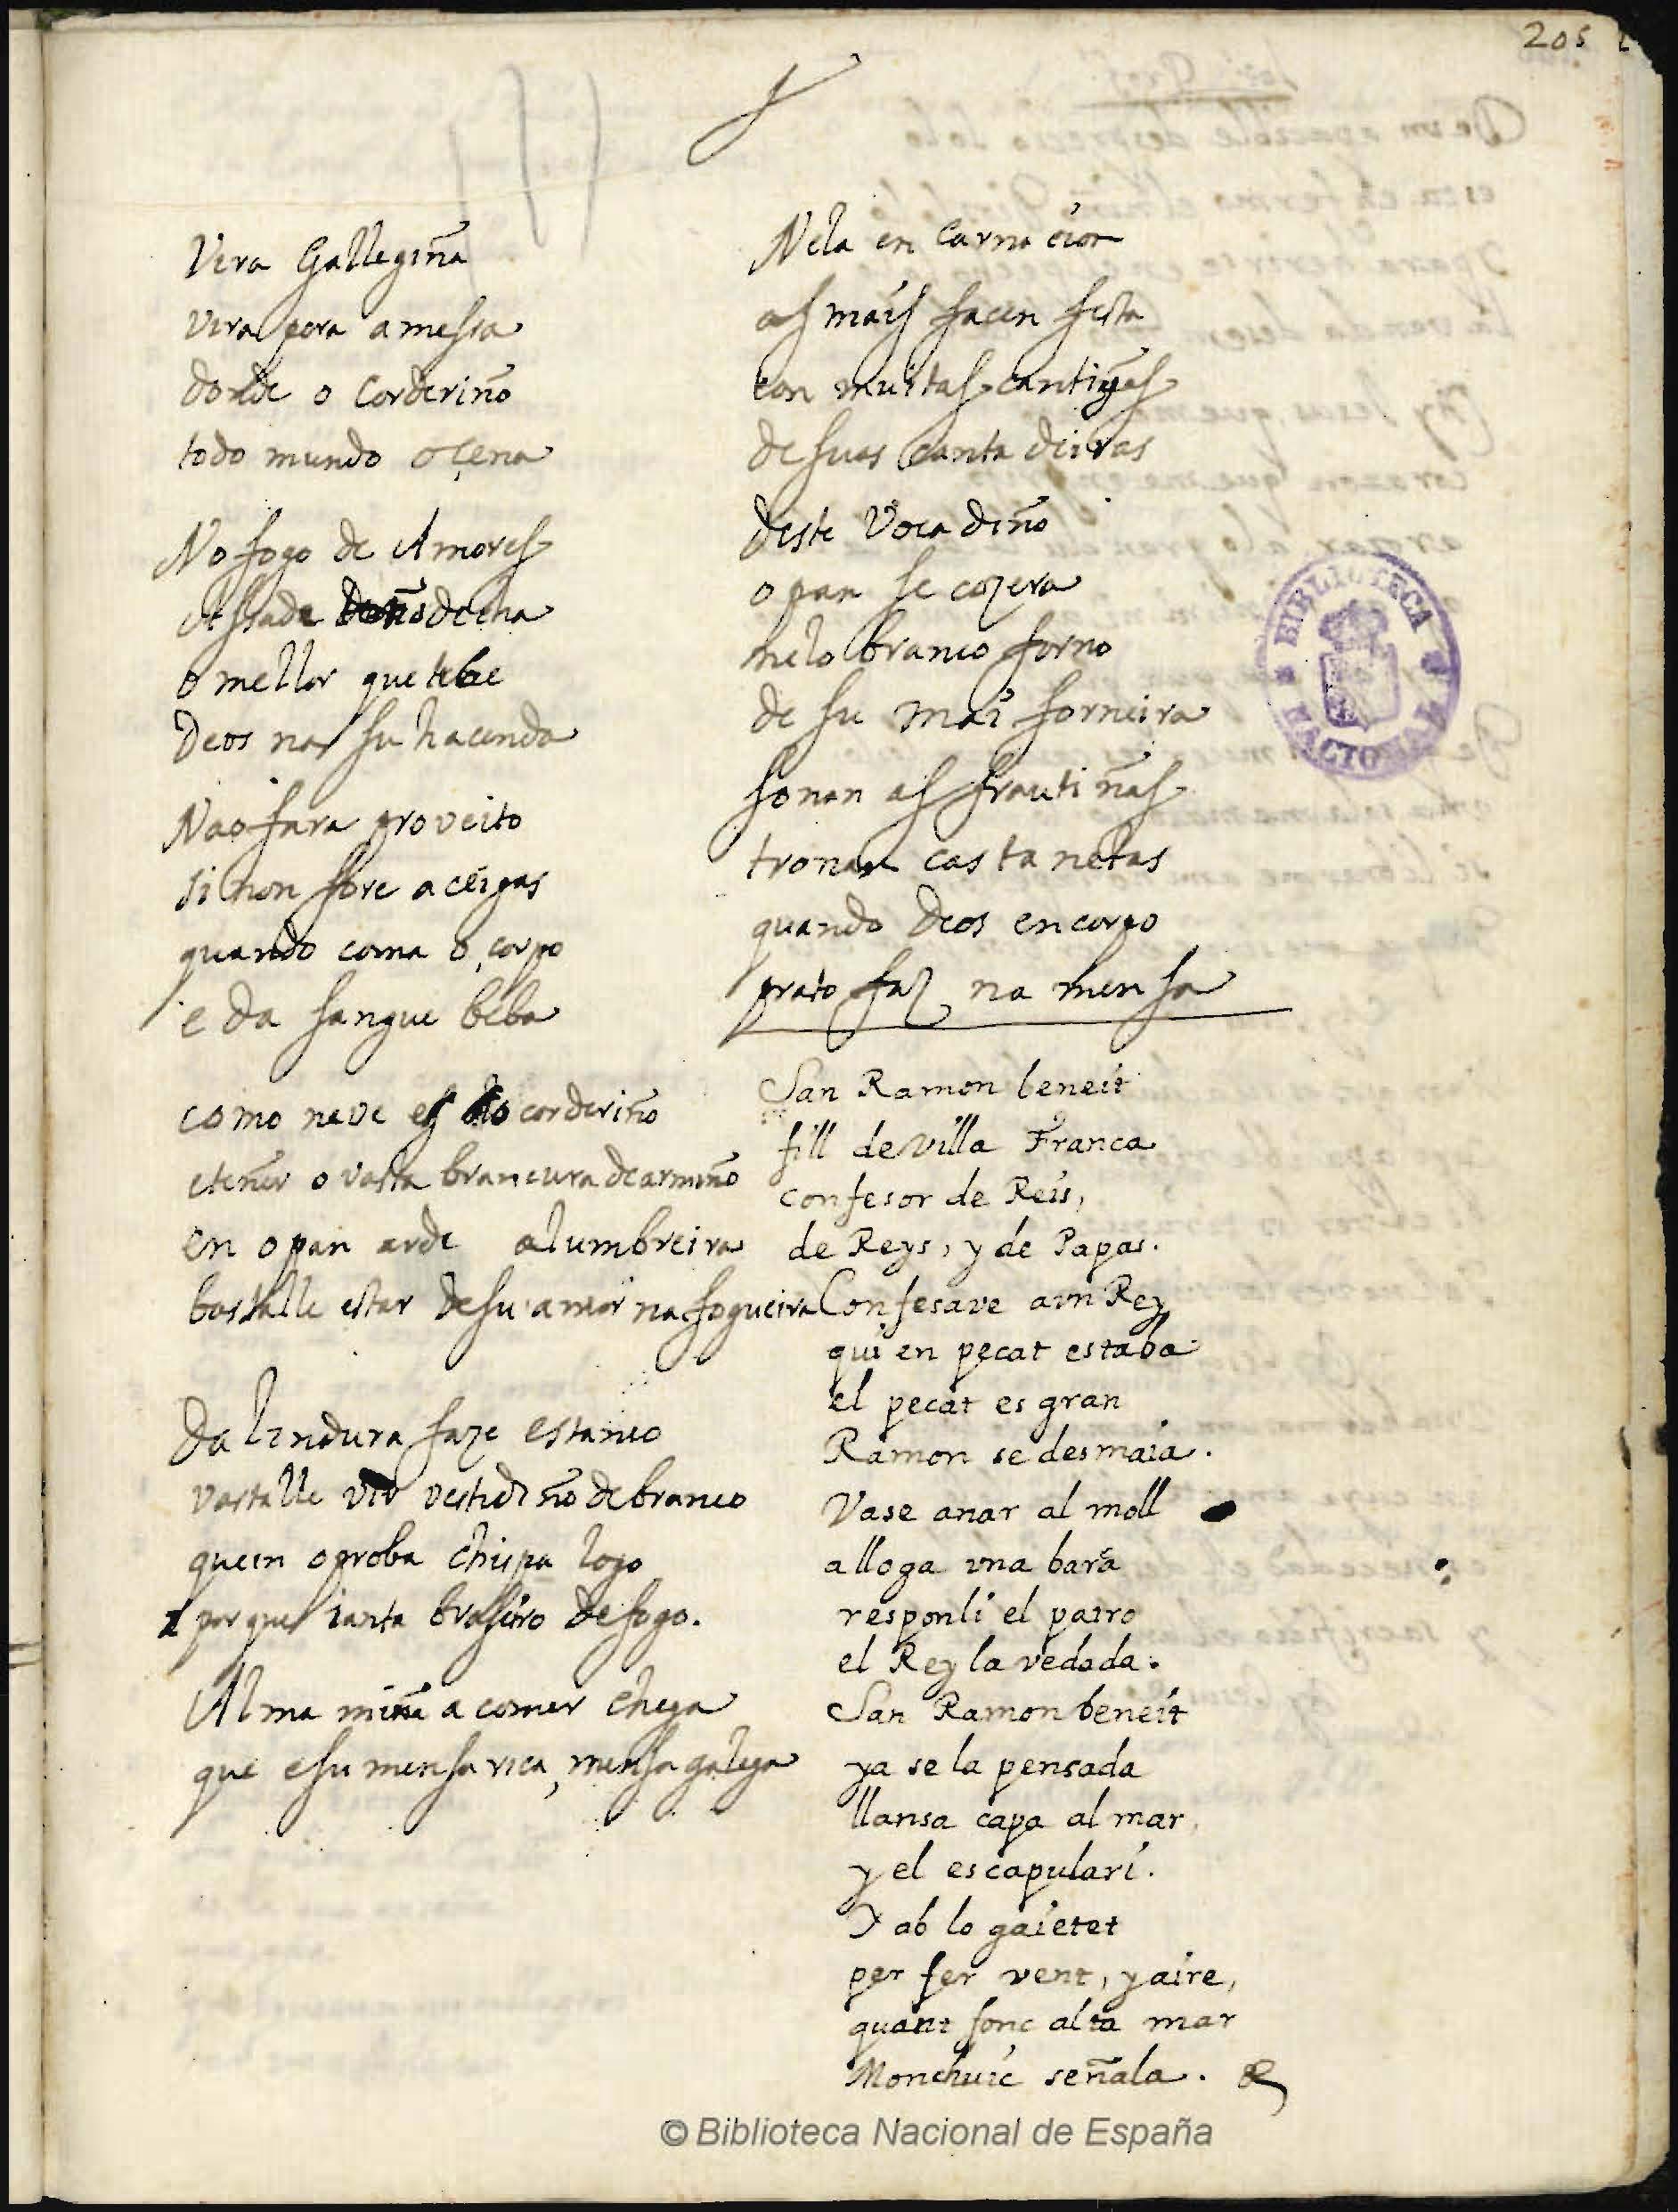 205
Vira Gallegiña
vira pora a messa
donde o Corderiño
todo mundo o çena
No fogo de Amores
Assada
o mellor que tebe
Deos na su hacenda
Nao fara proveito
si non fore a ceigas
quando coma o corpo
e da sangue beba
como neve es o corderiño
e tener o basta brancura de armiño
en o pan arde alumbreira
bastalle estar de su amor na fogueira
Da lindura faze estanco
vastalle vir vestidiño de branco
quein o proba chispa logo
porque ianta braseiro de fogo.
Alma miña a comer chega
que e su mensa rica, mensa galega
Nela encarnacion
as mais facen festa
con muitas cantiñas
de suas cantadeiras
Deste Vocadiño
o pan se cozera
nelo branco forno
de su mai forneira
sonan as frautiñas
tronan castanetas
quando Deos en corpo
prato faz na mensa
San Ramon beneit
fill de villa Franca
confesor de Reis,
de Reys, y de Papas.
Confesave a vn Rey
qui en pecat estaba
el pecat es gran
Ramon se desmaia.
Vase anar al moll
alloga vna barca
respon li el patro
el Rey la vedada.
San Ramon beneit
ya se la pensada
llansa capa al mar
y el escapulari.
Y ab lo gaietet
per fer vent, y aire,
quant fonc alta mar
Monchuic señala.
BIBLIOTECA NACIONAL
© Biblioteca Nacional de España